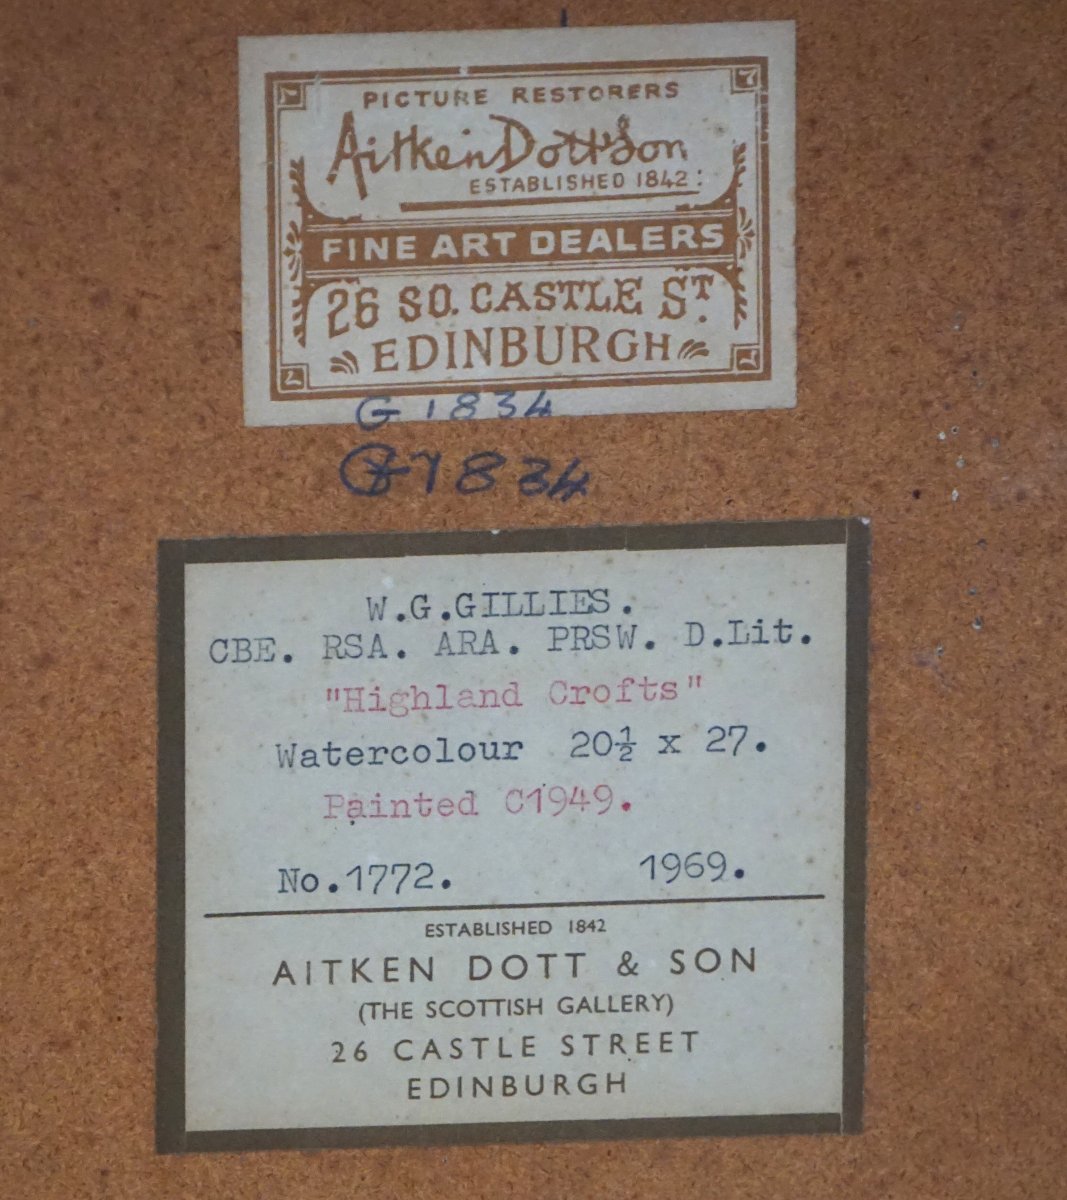 PICTURE RESTORERS
Aitken Dott & Son
ESTABLISHED 1842:
FINE ART DEALERS
26 SO. CASTLE ST.
EDINBURGH
G 1834
1834
W.G.GILLIES.
CBE. RSA. ARA. PRSW. D.Lit.
"Highland Crofts"
Watercolour 20½ x 27.
Painted C1949.
No.1772. 1969.
ESTABLISHED 1842
AITKEN DOTT & SON
(THE SCOTTISH GALLERY)
26 CASTLE STREET
EDINBURGH